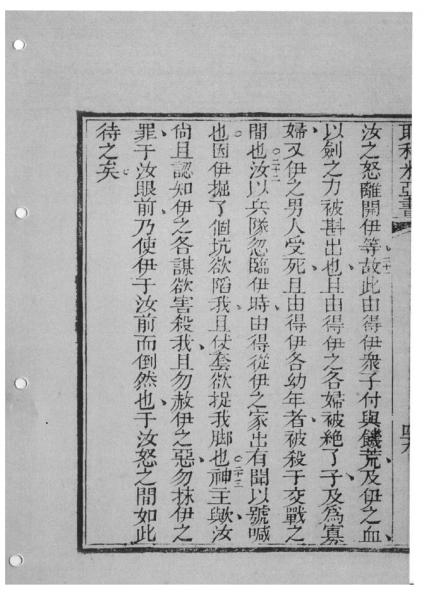 耶利米亞書
汝之怒離開伊等故此由得伊衆子付與饑荒及伊之血
以劍之力被斟出也且由得伊之各婦被絶了子及爲寡
婦又伊之男人受死且由得伊各幼年者被殺于交戰之
間也汝以兵隊忽臨伊時由得從伊之家出有聞以號喊
也因伊掘了個坑欲陷我且伏套欲捉我脚也神主歟汝
尚且認知伊之各謀欲害殺我且勿赦伊之惡勿抹伊之
罪于汝眼前乃使伊于汝前而倒然也于汝怒之間如此
待之矣